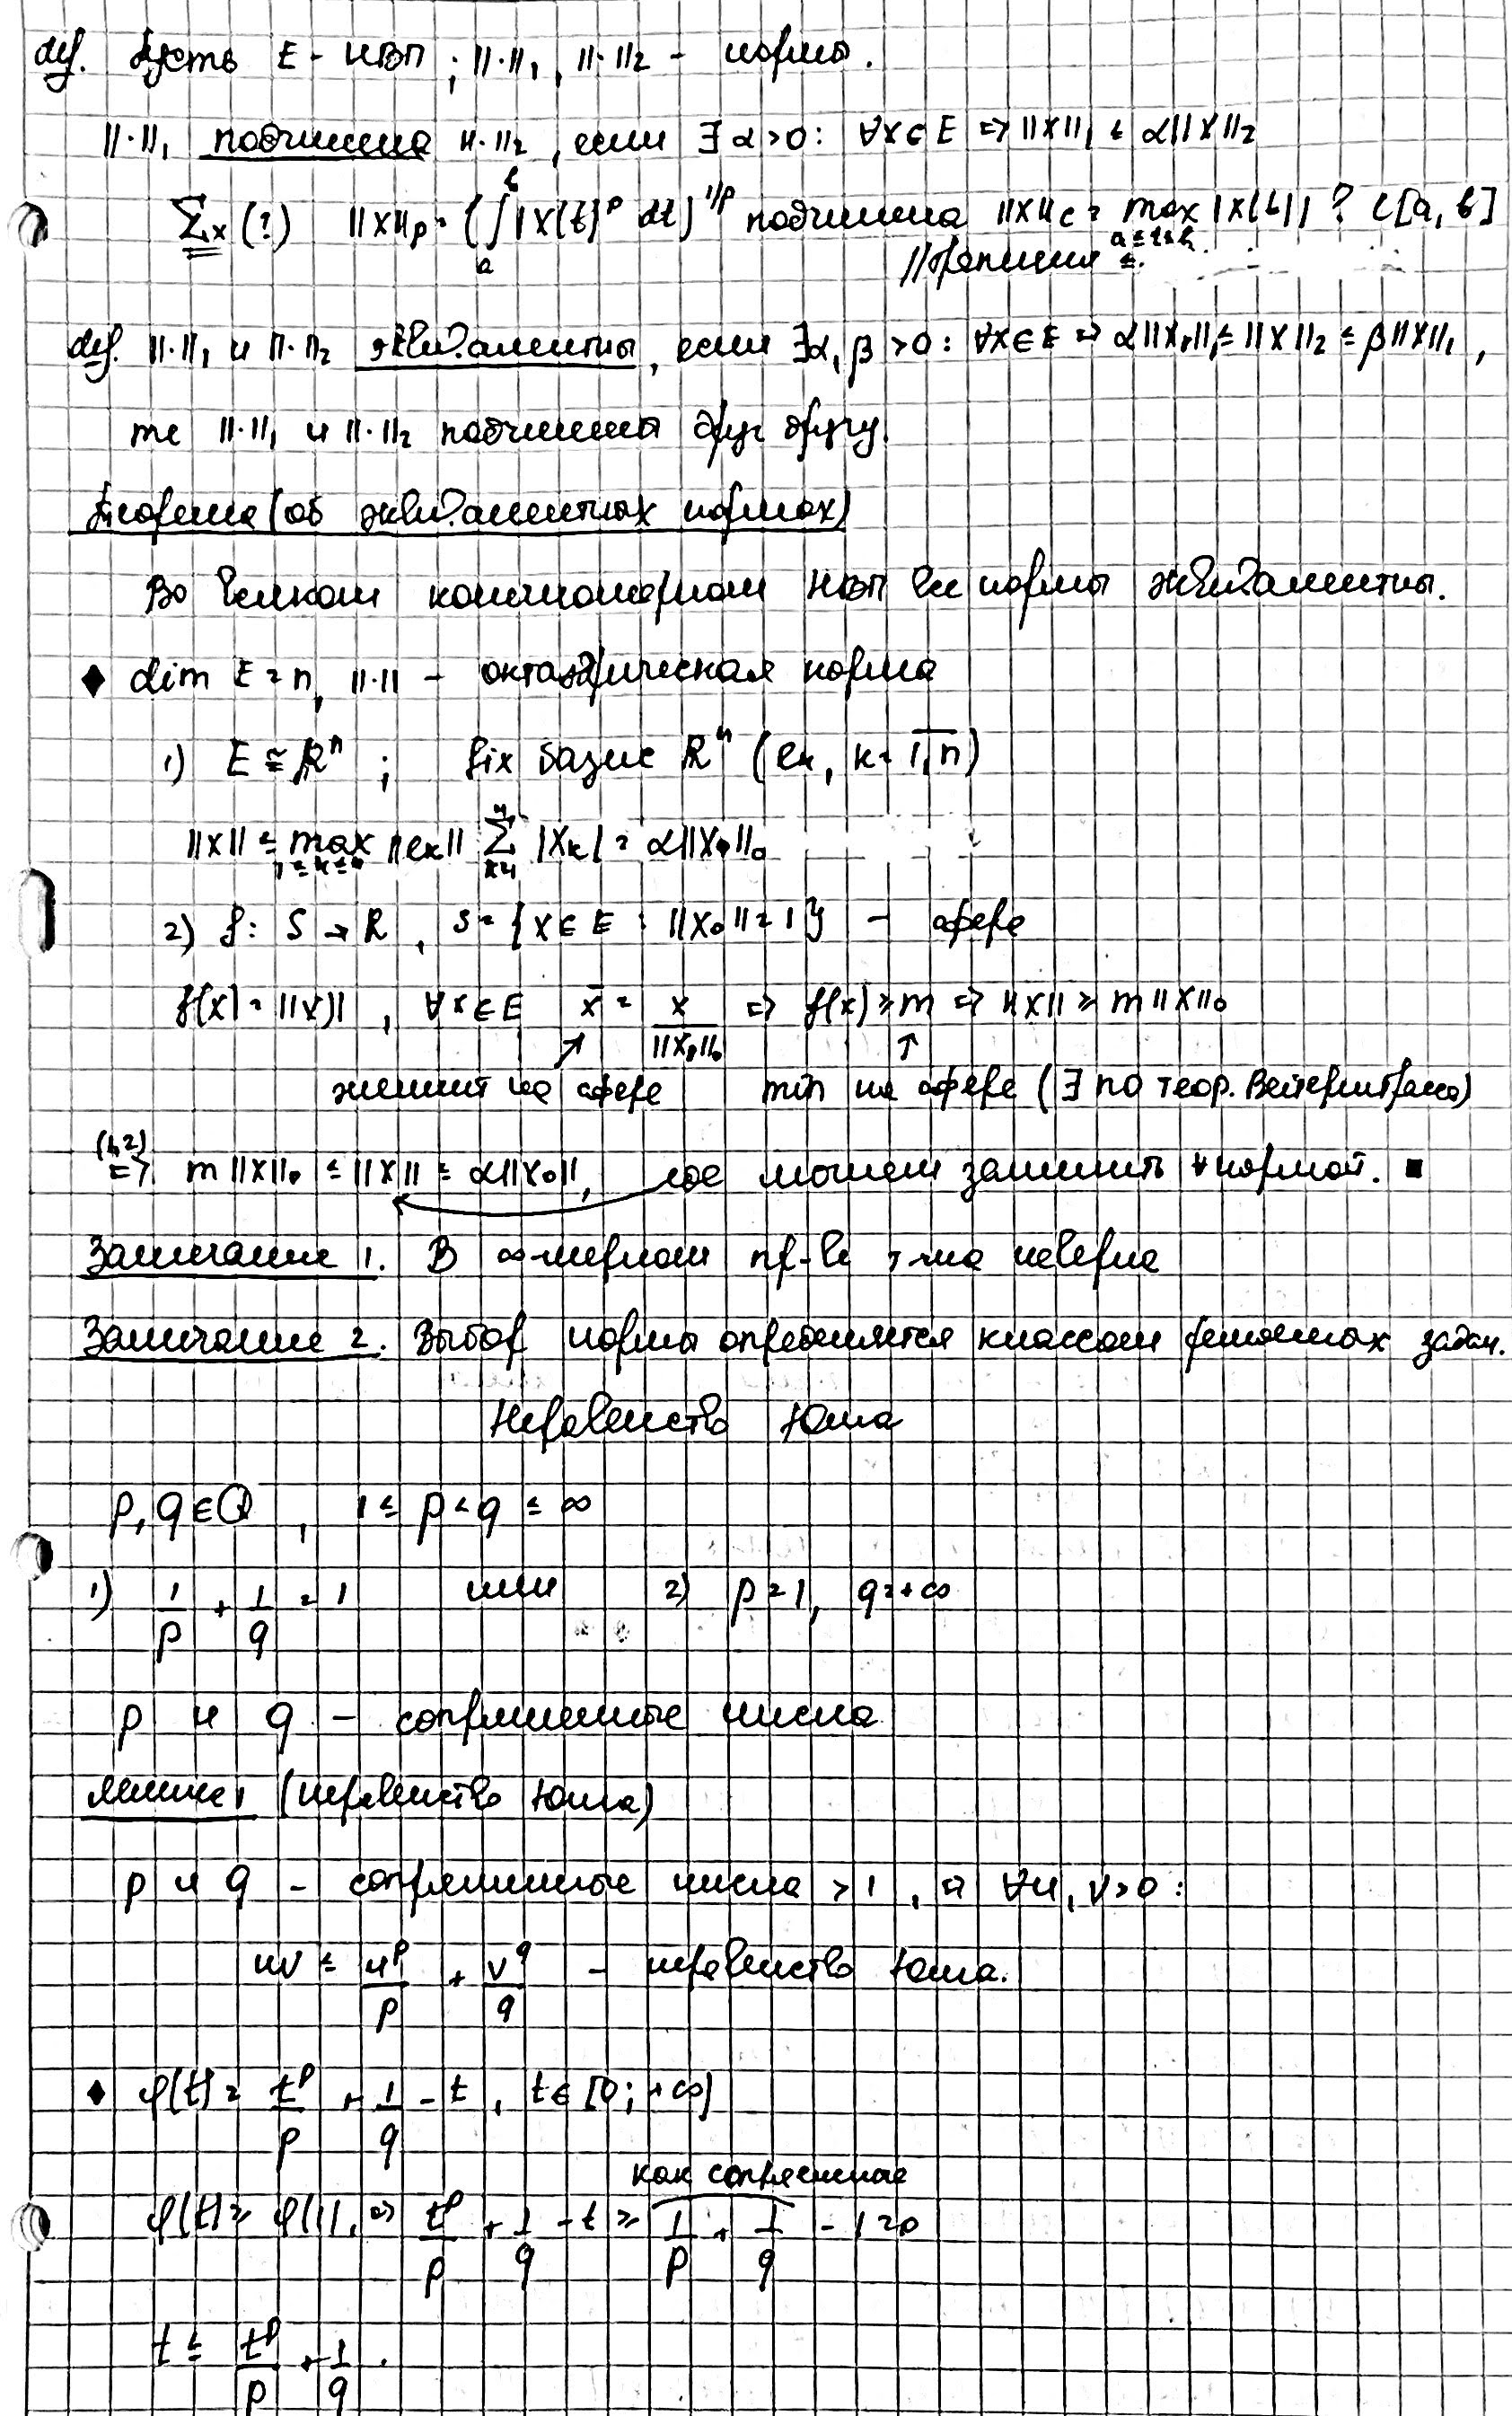 def. Пусть E - НВП ; ||·||₁, ||·||₂ - нормы.
||·||₁ подчинена ||·||₂, если ∃ α > 0: ∀x ∈ E ⇒ ||x||₁ ≤ α||x||₂
Ex (?) ||x||ₚ = (∫ₐᵇ |x(t)|ᵖ dt)^{1/p} подчинена ||x||_C = max_{a≤t≤b} |x(t)| ? C[a, b]
def. ||·||₁ и ||·||₂ эквивалентны, если ∃α, β > 0: ∀x ∈ E ⇒ α||x||₁ ≤ ||x||₂ ≤ β||x||₁,
те ||·||₁ и ||·||₂ подчинены друг другу.
Теорема (об эквивалентных нормах)
Во всяком конечномерном НВП все нормы эквивалентны.
♦ dim E = n, ||·|| - октаэдрическая норма
1) E ≅ ℝⁿ ; fix базис ℝⁿ (eₖ, k = 1,n)
||x|| ≤ max_{1≤k≤n} ||eₖ|| Σ_{k=1}^{n} |xₖ| = α||x||₀
2) f: S → ℝ, S = {x ∈ E : ||x₀|| = 1} - сфера
f(x) = ||x||, ∀x ∈ E x̄ = x / ||x||₀ ⇒ f(x) ≥ m ⇒ ||x|| ≥ m||x||₀
↗ ↑
лежит на сфере min на сфере (∃ по теор. Вейерштрасса)
(1,2)
⇒ m||x||₀ ≤ ||x|| ≤ α||x₀||, можем заменить ∀ нормой. ■
Замечание 1. В ∞-мерном пр-ве т-ма неверна
Замечание 2. Выбор нормы определяется классом решаемых задач.
Неравенство Юнга
p, q ∈ Q, 1 ≤ p < q ≤ ∞
1) 1/p + 1/q = 1 или 2) p = 1, q = +∞
p и q - сопряженные числа
Лемма 1 (неравенство Юнга)
p и q - сопряженные числа > 1, ⇒ ∀u, v > 0 :
uv ≤ uᵖ/p + v^q/q - неравенство Юнга.
♦ φ(t) = tᵖ/p + 1/q - t, t ∈ [0; +∞)
как сопряженные
φ(t) ≥ φ(1), ⇒ tᵖ/p + 1/q - t ≥ 1/p + 1/q - 1 = 0
t ≤ tᵖ/p + 1/q.